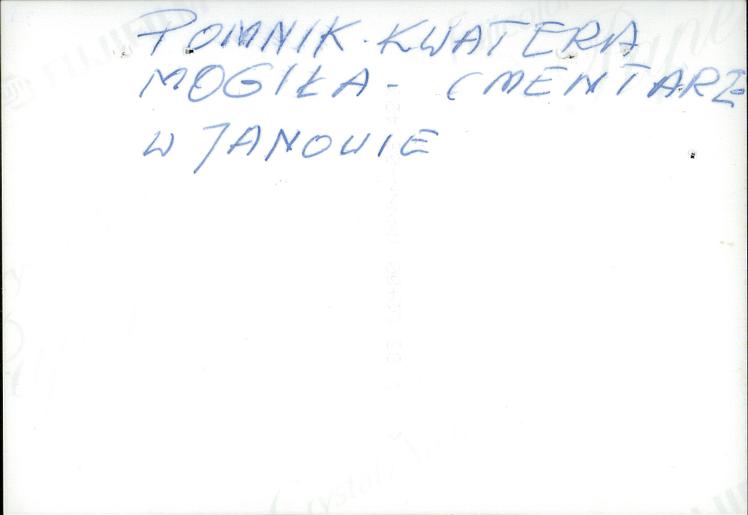 POMNIK. KWATERA
MOGIŁA - CMENTARZ
W JANOWIE